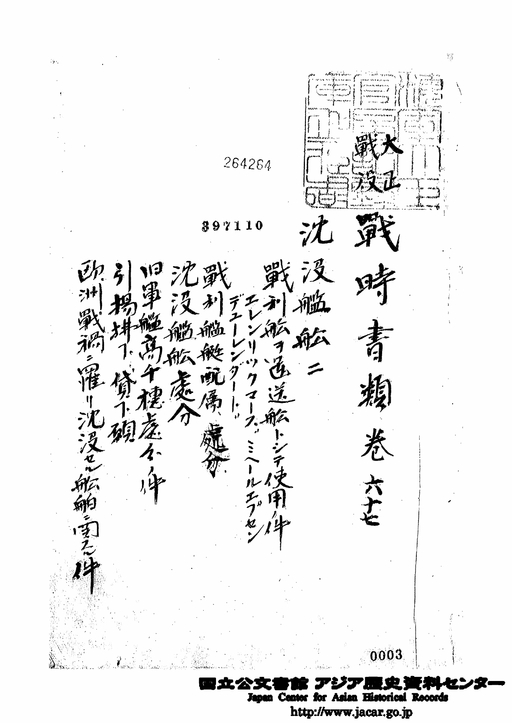 264264
397110
大正
戰役
戰時書類巻六十七
沈没艦舩二
戰利舩ヲ運送舩トシテ使用ノ件
エレンリックマース、ミヘールエブセン
デューレンダート、
戰利艦艇配属、處分
沈没艦舩處分
旧軍艦高千穂處分ノ件
引揚拂下貸下願
欧洲戰禍ニ罹リ沈没セル舩舶ニ関スル件
0003
国立公文書館 アジア歴史資料センター
Japan Center for Asian Historical Records
http://www.jacar.go.jp